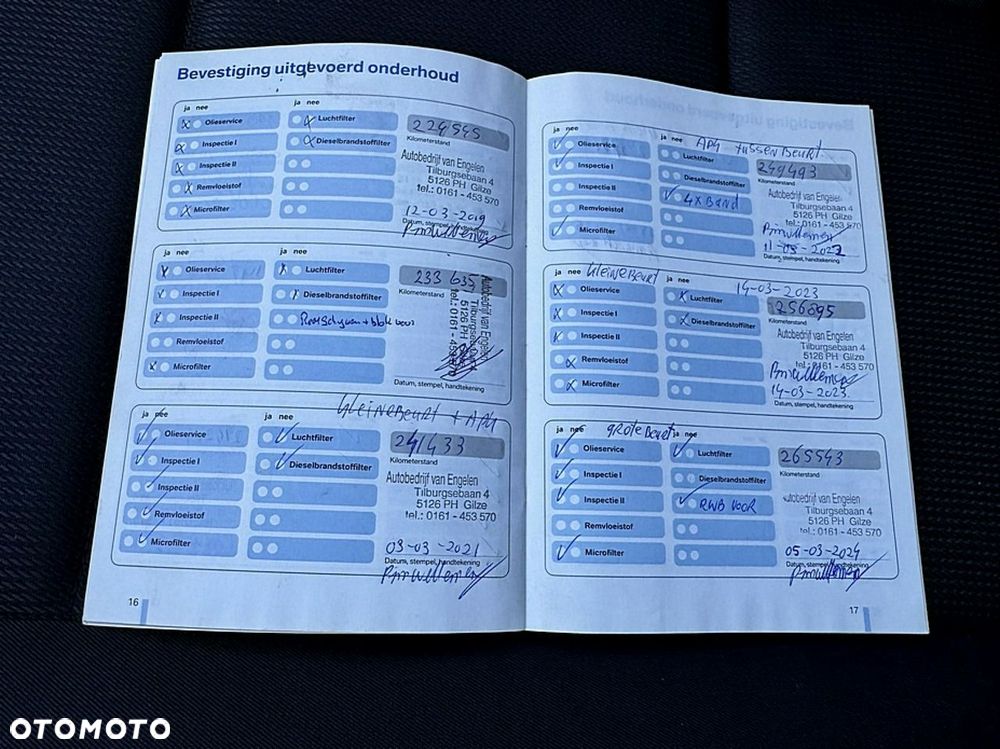 Bevestiging uitgevoerd onderhoud
ja nee
ja nee
Olieservice
Luchtfilter
224545
Kilometerstand
Inspectie I
Dieselbrandstoffilter
Inspectie II
Remvloeistof
Microfilter
Autobedrijf van Engelen
Tilburgsebaan 4
5126 PH Gilze
tel.: 0161 - 453 570
12-03-2019
Datum, stempel, handtekening
ja nee
ja nee
Olieservice
Luchtfilter
233 635
Kilometerstand
Inspectie I
Dieselbrandstoffilter
Inspectie II
Remvloeistof
Microfilter
Autobedrijf van Engelen
Tilburgsebaan 4
5126 PH Gilze
tel.: 0161 - 453 570
Datum, stempel, handtekening
kleine Beurt + APK
ja nee
ja nee
Olieservice
Luchtfilter
241433
Kilometerstand
Inspectie I
Dieselbrandstoffilter
Inspectie II
Remvloeistof
Microfilter
Autobedrijf van Engelen
Tilburgsebaan 4
5126 PH Gilze
tel.: 0161 - 453 570
03-03-2021
Datum, stempel, handtekening
16
ja nee
ja nee
APK + tussen Beurt
Olieservice
Luchtfilter
249493
Kilometerstand
Inspectie I
Dieselbrandstoffilter
Inspectie II
4x Band
Remvloeistof
Microfilter
Autobedrijf van Engelen
Tilburgsebaan 4
5126 PH Gilze
tel.: 0161 - 453 570
11-03-2022
Datum, stempel, handtekening
ja nee
kleine Beurt
ja nee
14-03-2023
Olieservice
Luchtfilter
256095
Kilometerstand
Inspectie I
Dieselbrandstoffilter
Inspectie II
Remvloeistof
Microfilter
Autobedrijf van Engelen
Tilburgsebaan 4
5126 PH Gilze
tel.: 0161 - 453 570
14-03-2023
Datum, stempel, handtekening
ja nee
grote Beurt
ja nee
Olieservice
Luchtfilter
265543
Kilometerstand
Inspectie I
Dieselbrandstoffilter
Inspectie II
RWB VOOR
Remvloeistof
Microfilter
Autobedrijf van Engelen
Tilburgsebaan 4
5126 PH Gilze
tel.: 0161 - 453 570
05-03-2024
Datum, stempel, handtekening
17
OTOMOTO